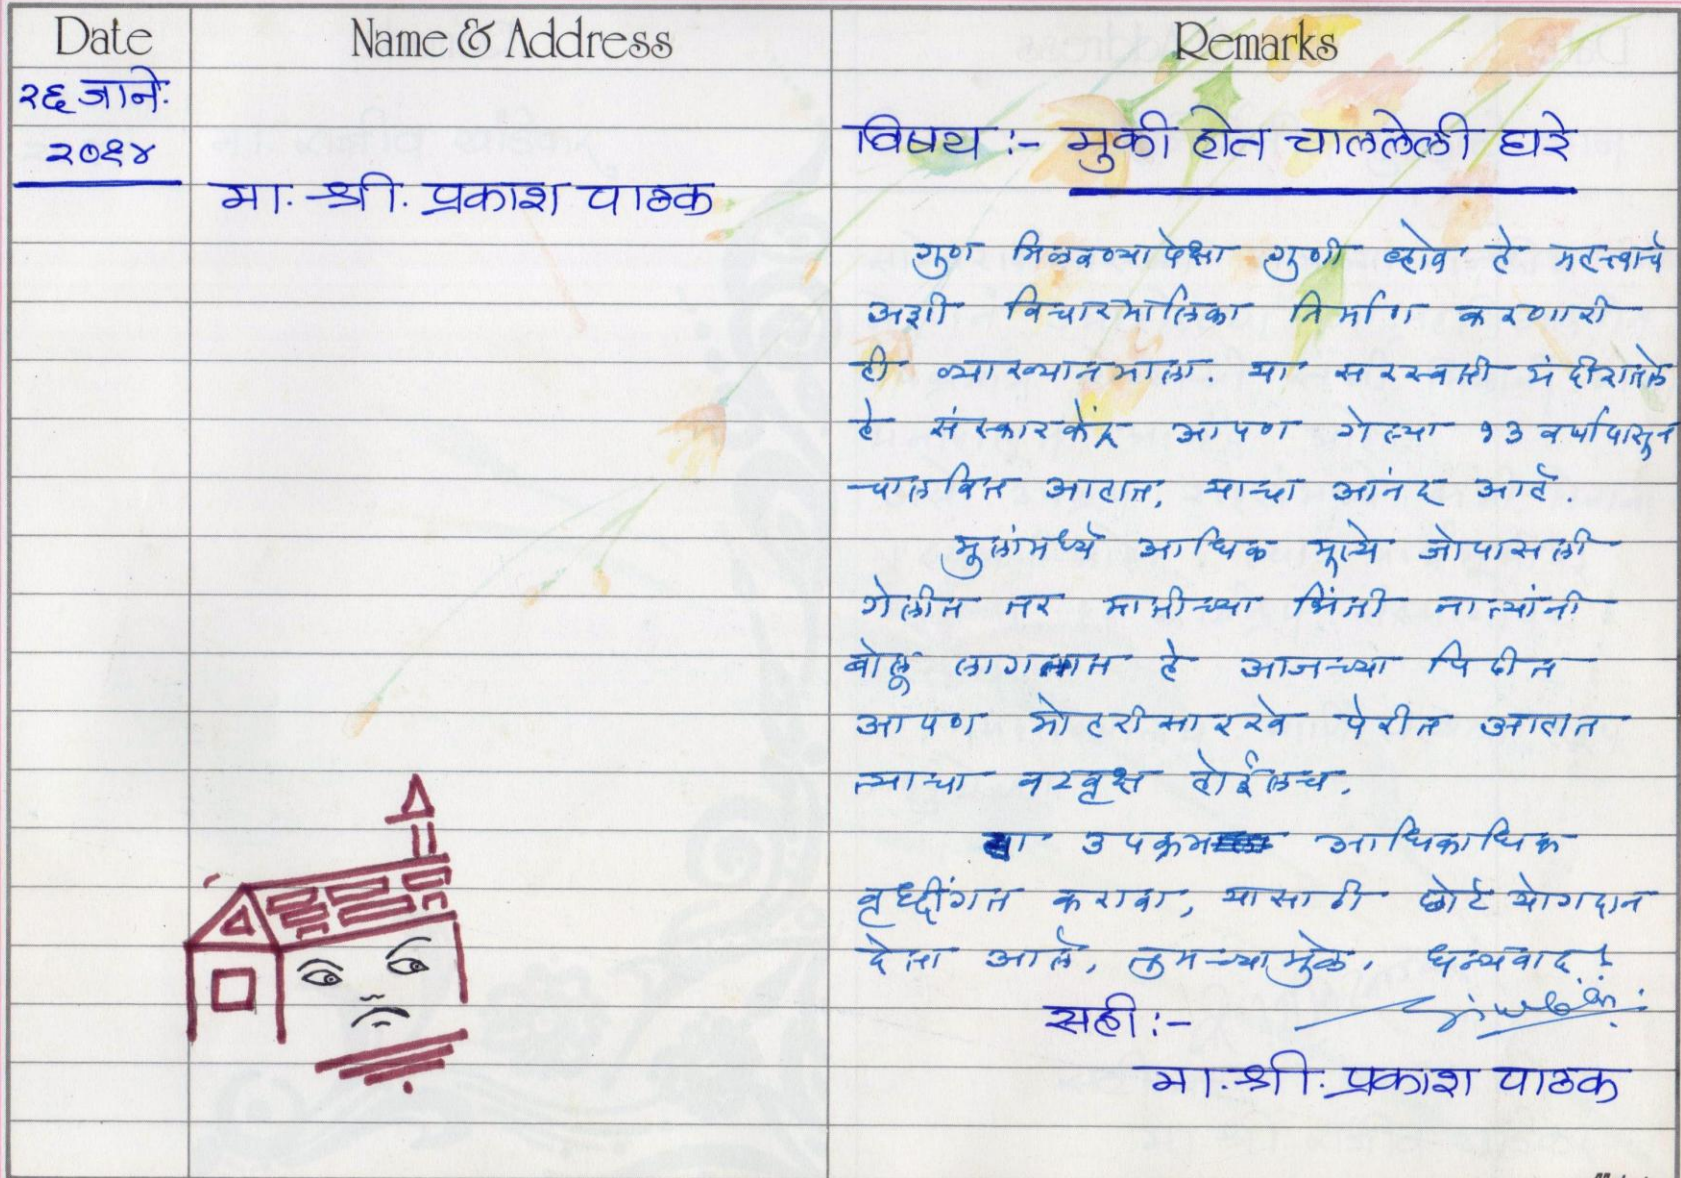 Date Name & Address Remarks
२६ जाने.
२०१४
मा. श्री. प्रकाश पाठक
विषय :- मुकी होत चाललेली घरे
गुण मिळवण्यापेक्षा गुणी व्होवं हे महत्त्वाचे
अशी विचारमालिका निर्माण करणारी
ही व्याख्यानमाला. या सरस्वती मंदीरातले
हे संस्कारकेंद्र आपण गेल्या १३ वर्षापासून
चालवित आहात, याचा आनंद आहे.
मुलांमध्ये आधिक मूल्ये जोपासली
गेलीत तर मातीच्या भिंती नात्यांनी
बोलू लागतात हे आजच्या पिढीत
आपण मोहरीसारखे पेरीत आहात
त्याचा वटवृक्ष होईलच.
हा उपक्रम आधिकाधिक
वृध्दींगत करावा, यासाठी छोटे योगदान
देता आले, तुमच्यामुळे. धन्यवाद !
सही :-
मा. श्री. प्रकाश पाठक